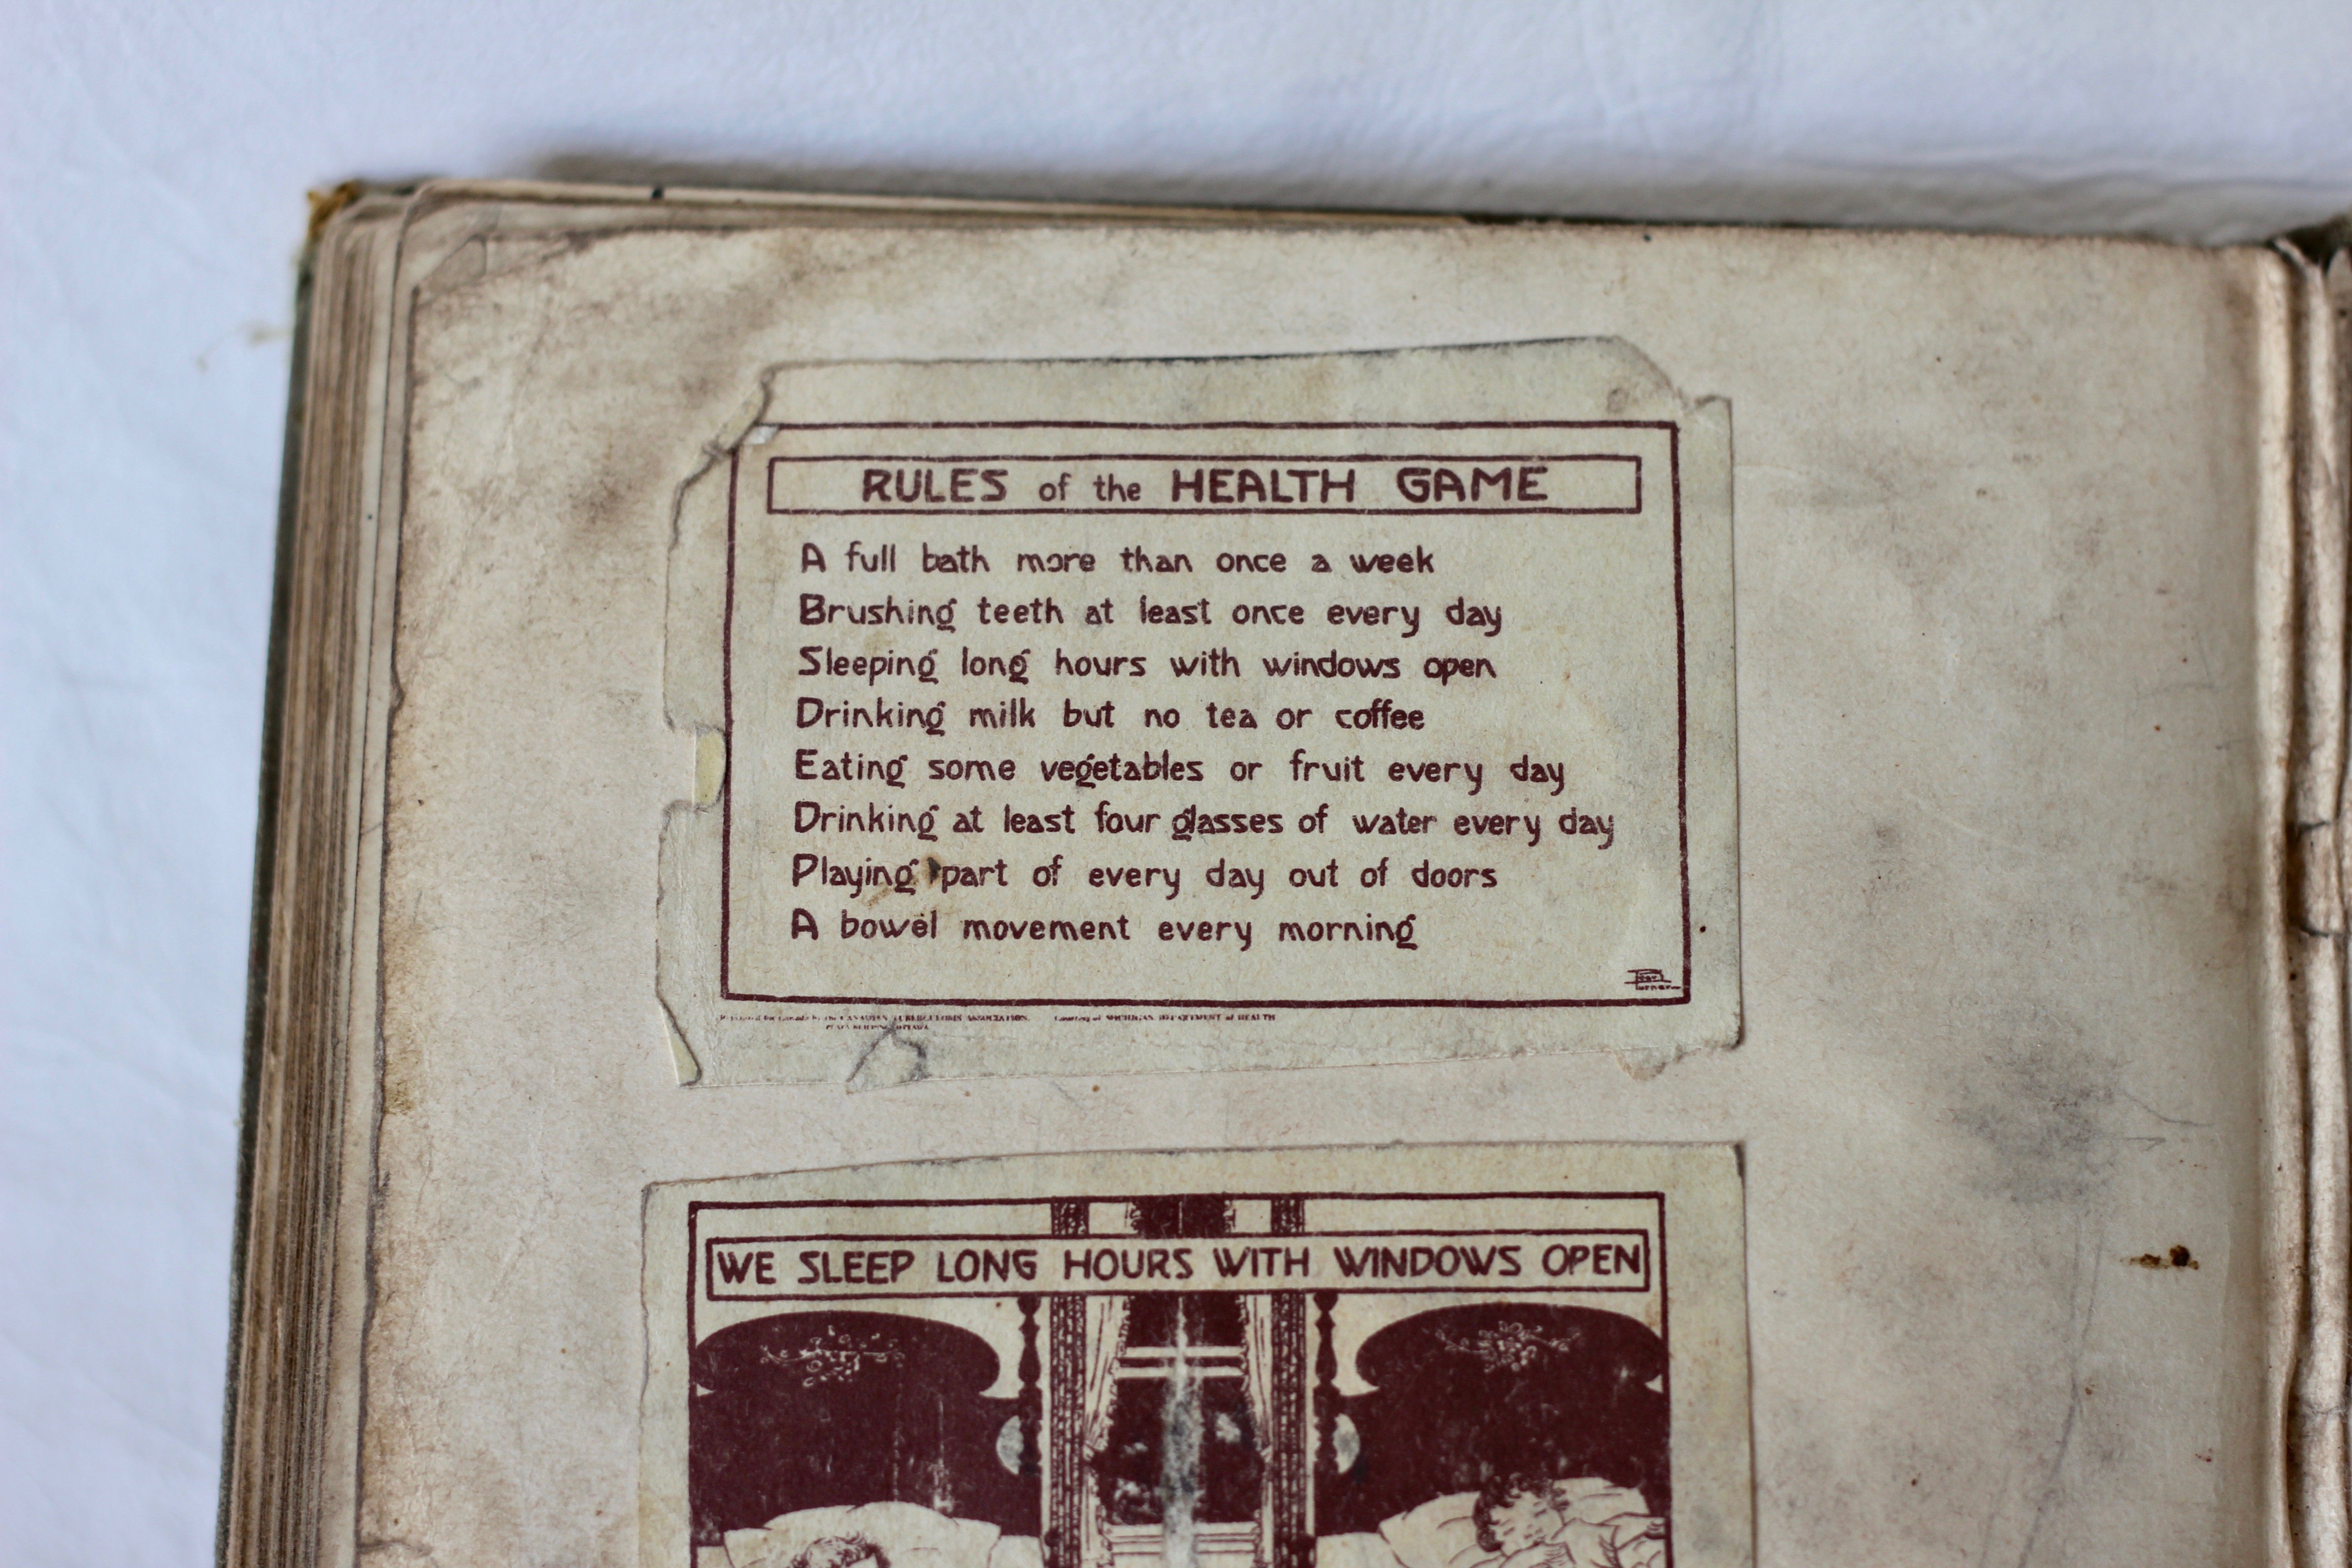 RULES of the HEALTH GAME
A full bath more than once a week
Brushing teeth at least once every day
Sleeping long hours with windows open
Drinking milk but no tea or coffee
Eating some vegetables or fruit every day
Drinking at least four glasses of water every day
Playing part of every day out of doors
A bowel movement every morning
for Canada by the CANADIAN TUBERCULOSIS ASSOCIATION. Courtesy of MICHIGAN DEPARTMENT of HEALTH
WE SLEEP LONG HOURS WITH WINDOWS OPEN